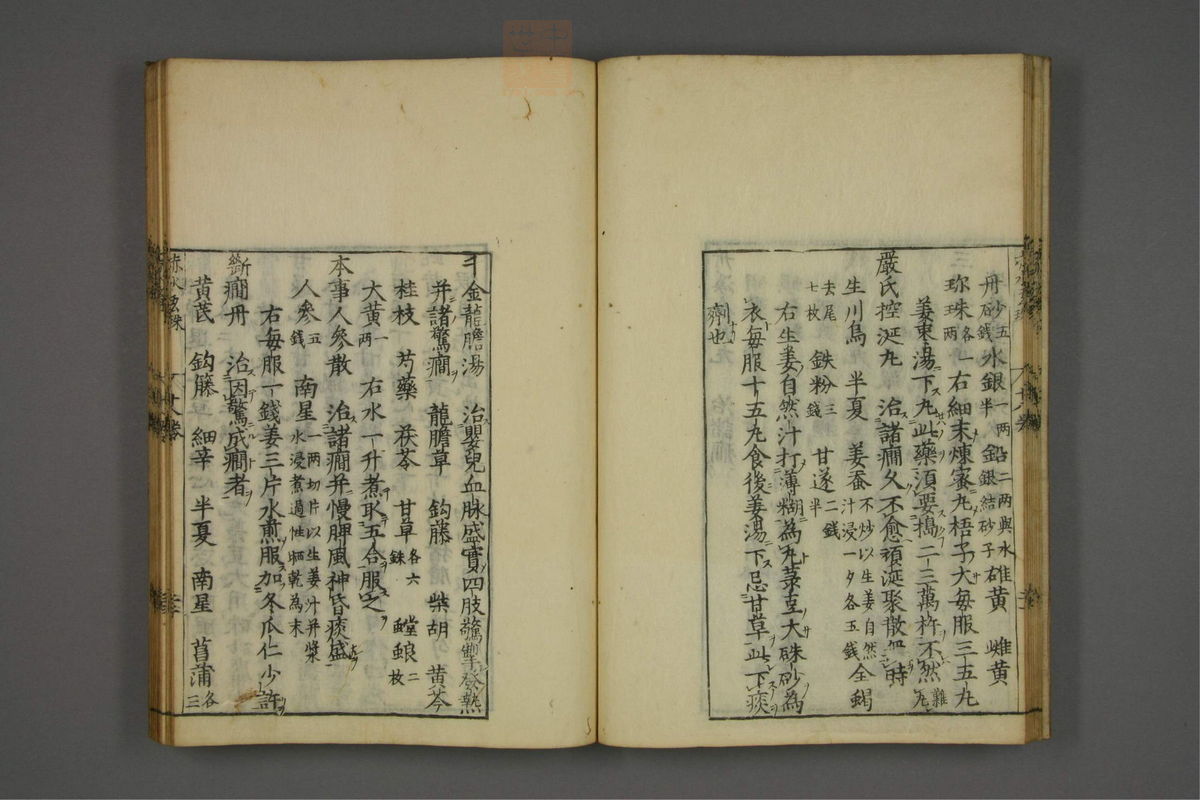 丹砂五錢水銀一兩半鉛二两與水金銀結砂子雄黄　雌黄
珎珠各一兩右細末煉蜜丸梧子大每服三五丸
姜棗湯下丸此藥須要搗二三萬杵不然難丸
嚴氏控涎丸　治諸癎久不愈頑涎聚散無時
生川烏　半夏　姜蚕不炒以生姜自然汁浸一夕各五錢全蝎
去尾七枚　鉄粉三錢　甘遂二錢半
右生姜自然汁打薄糊為丸菉豆大硃砂為
衣每服十五丸食後姜湯下忌甘草此下痰
劑也
千金龍膽湯　治嬰兒血脉盛實四肢驚掣發熱
并諸驚癎　龍膽草　鈎藤　柴胡　黄芩
桂枝　芍藥　茯苓　甘草各六銖　螳蜋二枚
大黄一兩　右水一升煮取五合服之
本事人參散　治諸癎并慢脾風神昏痰盛
人參五錢　南星一两切片以生姜汁并漿水浸煮過性晒乾為末
右每服一錢姜三片水煎服加冬瓜仁少許
斷癎丹　治因驚成癎者
黄芪　鈎籐　細辛　半夏　南星　菖蒲各三
赤水玄珠